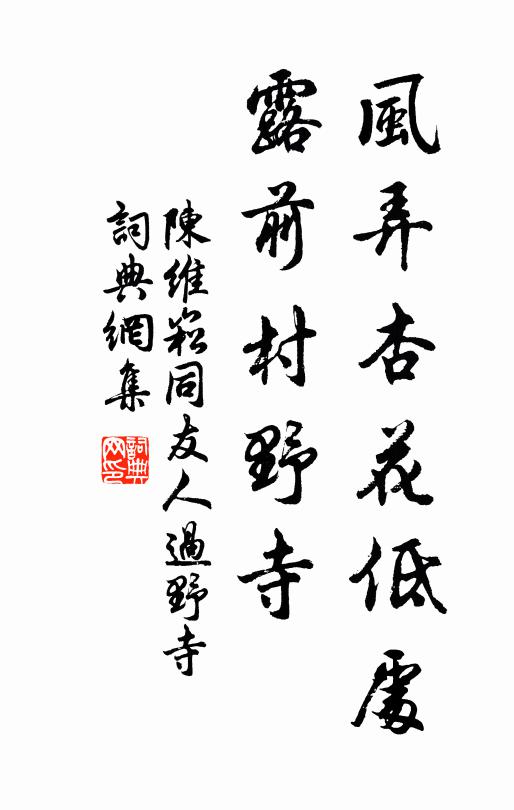 風弄杏花低處
露前村野寺
陳維崧同友人過野寺
詞典網集
詞典網印